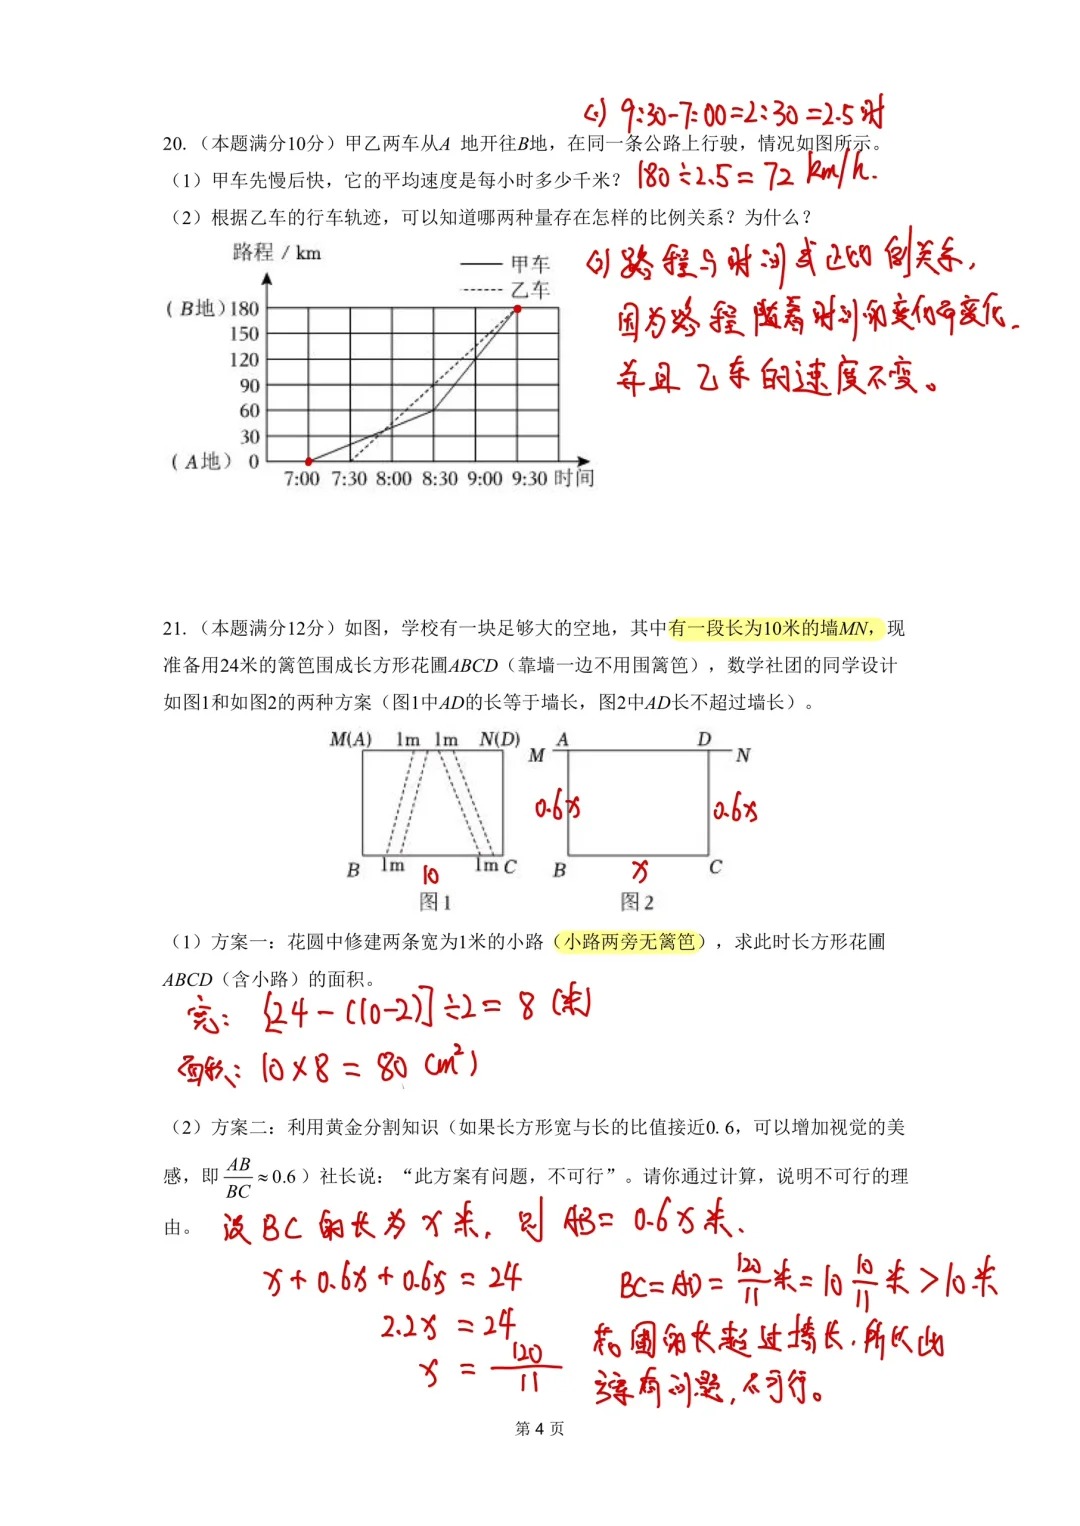 (1) 9:30-7:00=2:30=2.5时
20. （本题满分10分）甲乙两车从A 地开往B地，在同一条公路上行驶，情况如图所示。
（1）甲车先慢后快，它的平均速度是每小时多少千米？ 180÷2.5=72 km/h.
（2）根据乙车的行车轨迹，可以知道哪两种量存在怎样的比例关系？为什么？
路程 / km
甲车
乙车
(2) 路程与时间成正比例关系,
因为路程随着时间的变化而变化.
并且乙车的速度不变。
（B地）180
150
120
90
60
30
（A地）0
7:00 7:30 8:00 8:30 9:00 9:30 时间
21. （本题满分12分）如图，学校有一块足够大的空地，其中有一段长为10米的墙MN，现
准备用24米的篱笆围成长方形花圃ABCD（靠墙一边不用围篱笆），数学社团的同学设计
如图1和如图2的两种方案（图1中AD的长等于墙长，图2中AD长不超过墙长）。
M(A) 1m 1m N(D)
M A D N
0.6x 0.6x
B 1m 10 1m C
B x C
图1 图2
（1）方案一：花圆中修建两条宽为1米的小路（小路两旁无篱笆），求此时长方形花圃
ABCD（含小路）的面积。
宽: [24-(10-2)]÷2=8 (米)
面积: 10×8=80 (m²)
（2）方案二：利用黄金分割知识（如果长方形宽与长的比值接近0. 6，可以增加视觉的美
感，即 AB/BC ≈0.6）社长说：“此方案有问题，不可行”。请你通过计算，说明不可行的理
由。 设BC的长为x米, 则AB=0.6x米.
x+0.6x+0.6x=24
2.2x=24
x=120/11
BC=AD=120/11米=10 10/11米>10米
花圃的长超过墙长.所以此
方案有问题,不可行。
第 4 页